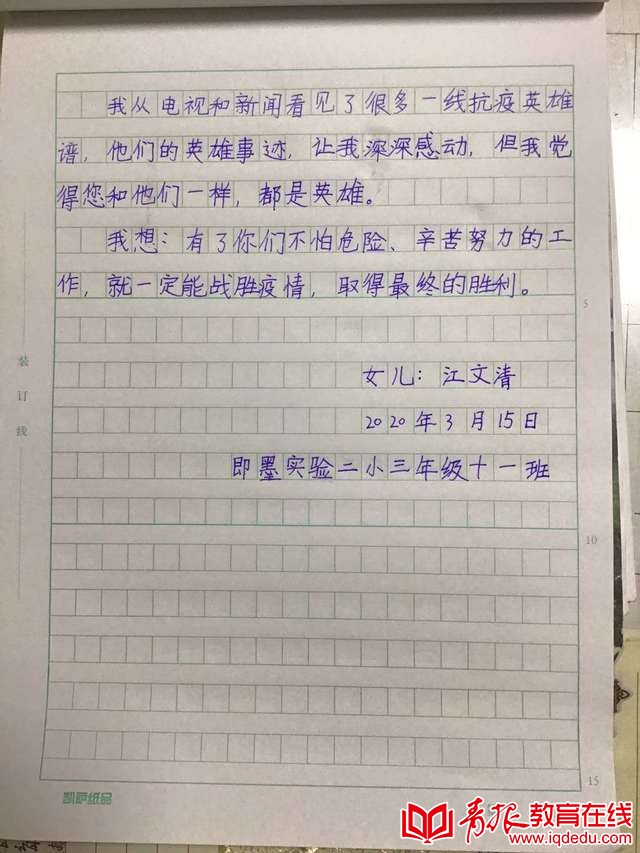 我从电视和新闻看见了很多一线抗疫英雄
谱，他们的英雄事迹，让我深深感动，但我觉
得您和他们一样，都是英雄。
我想：有了你们不怕危险、辛苦努力的工
作，就一定能战胜疫情，取得最终的胜利。
5
女儿：江文清
2020年3月15日
即墨实验二小三年级十一班
装订线
10
15
凯萨纸品
青报教育在线
www.iqdedu.com